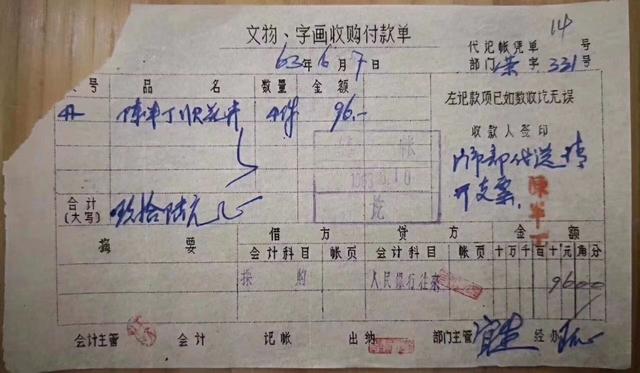 文物、字画收购付款单
14
63年6月7日
代记帐凭单 号
部门 字331号
号 品名 数量 金额
陈半丁 花卉 4件 96.—
左记款项已如数收讫无误
收款人签印
门市部代送请
开支票
陳半丁
帐
讫
合计
(大写) 玖拾陆元
摘要 借方 贷方 金额
会计科目 帐页 会计科目 帐页 十万千百十元角分
採购 人民银行往来 9600
会计主管 会计 记帐 出纳 部门主管 经办